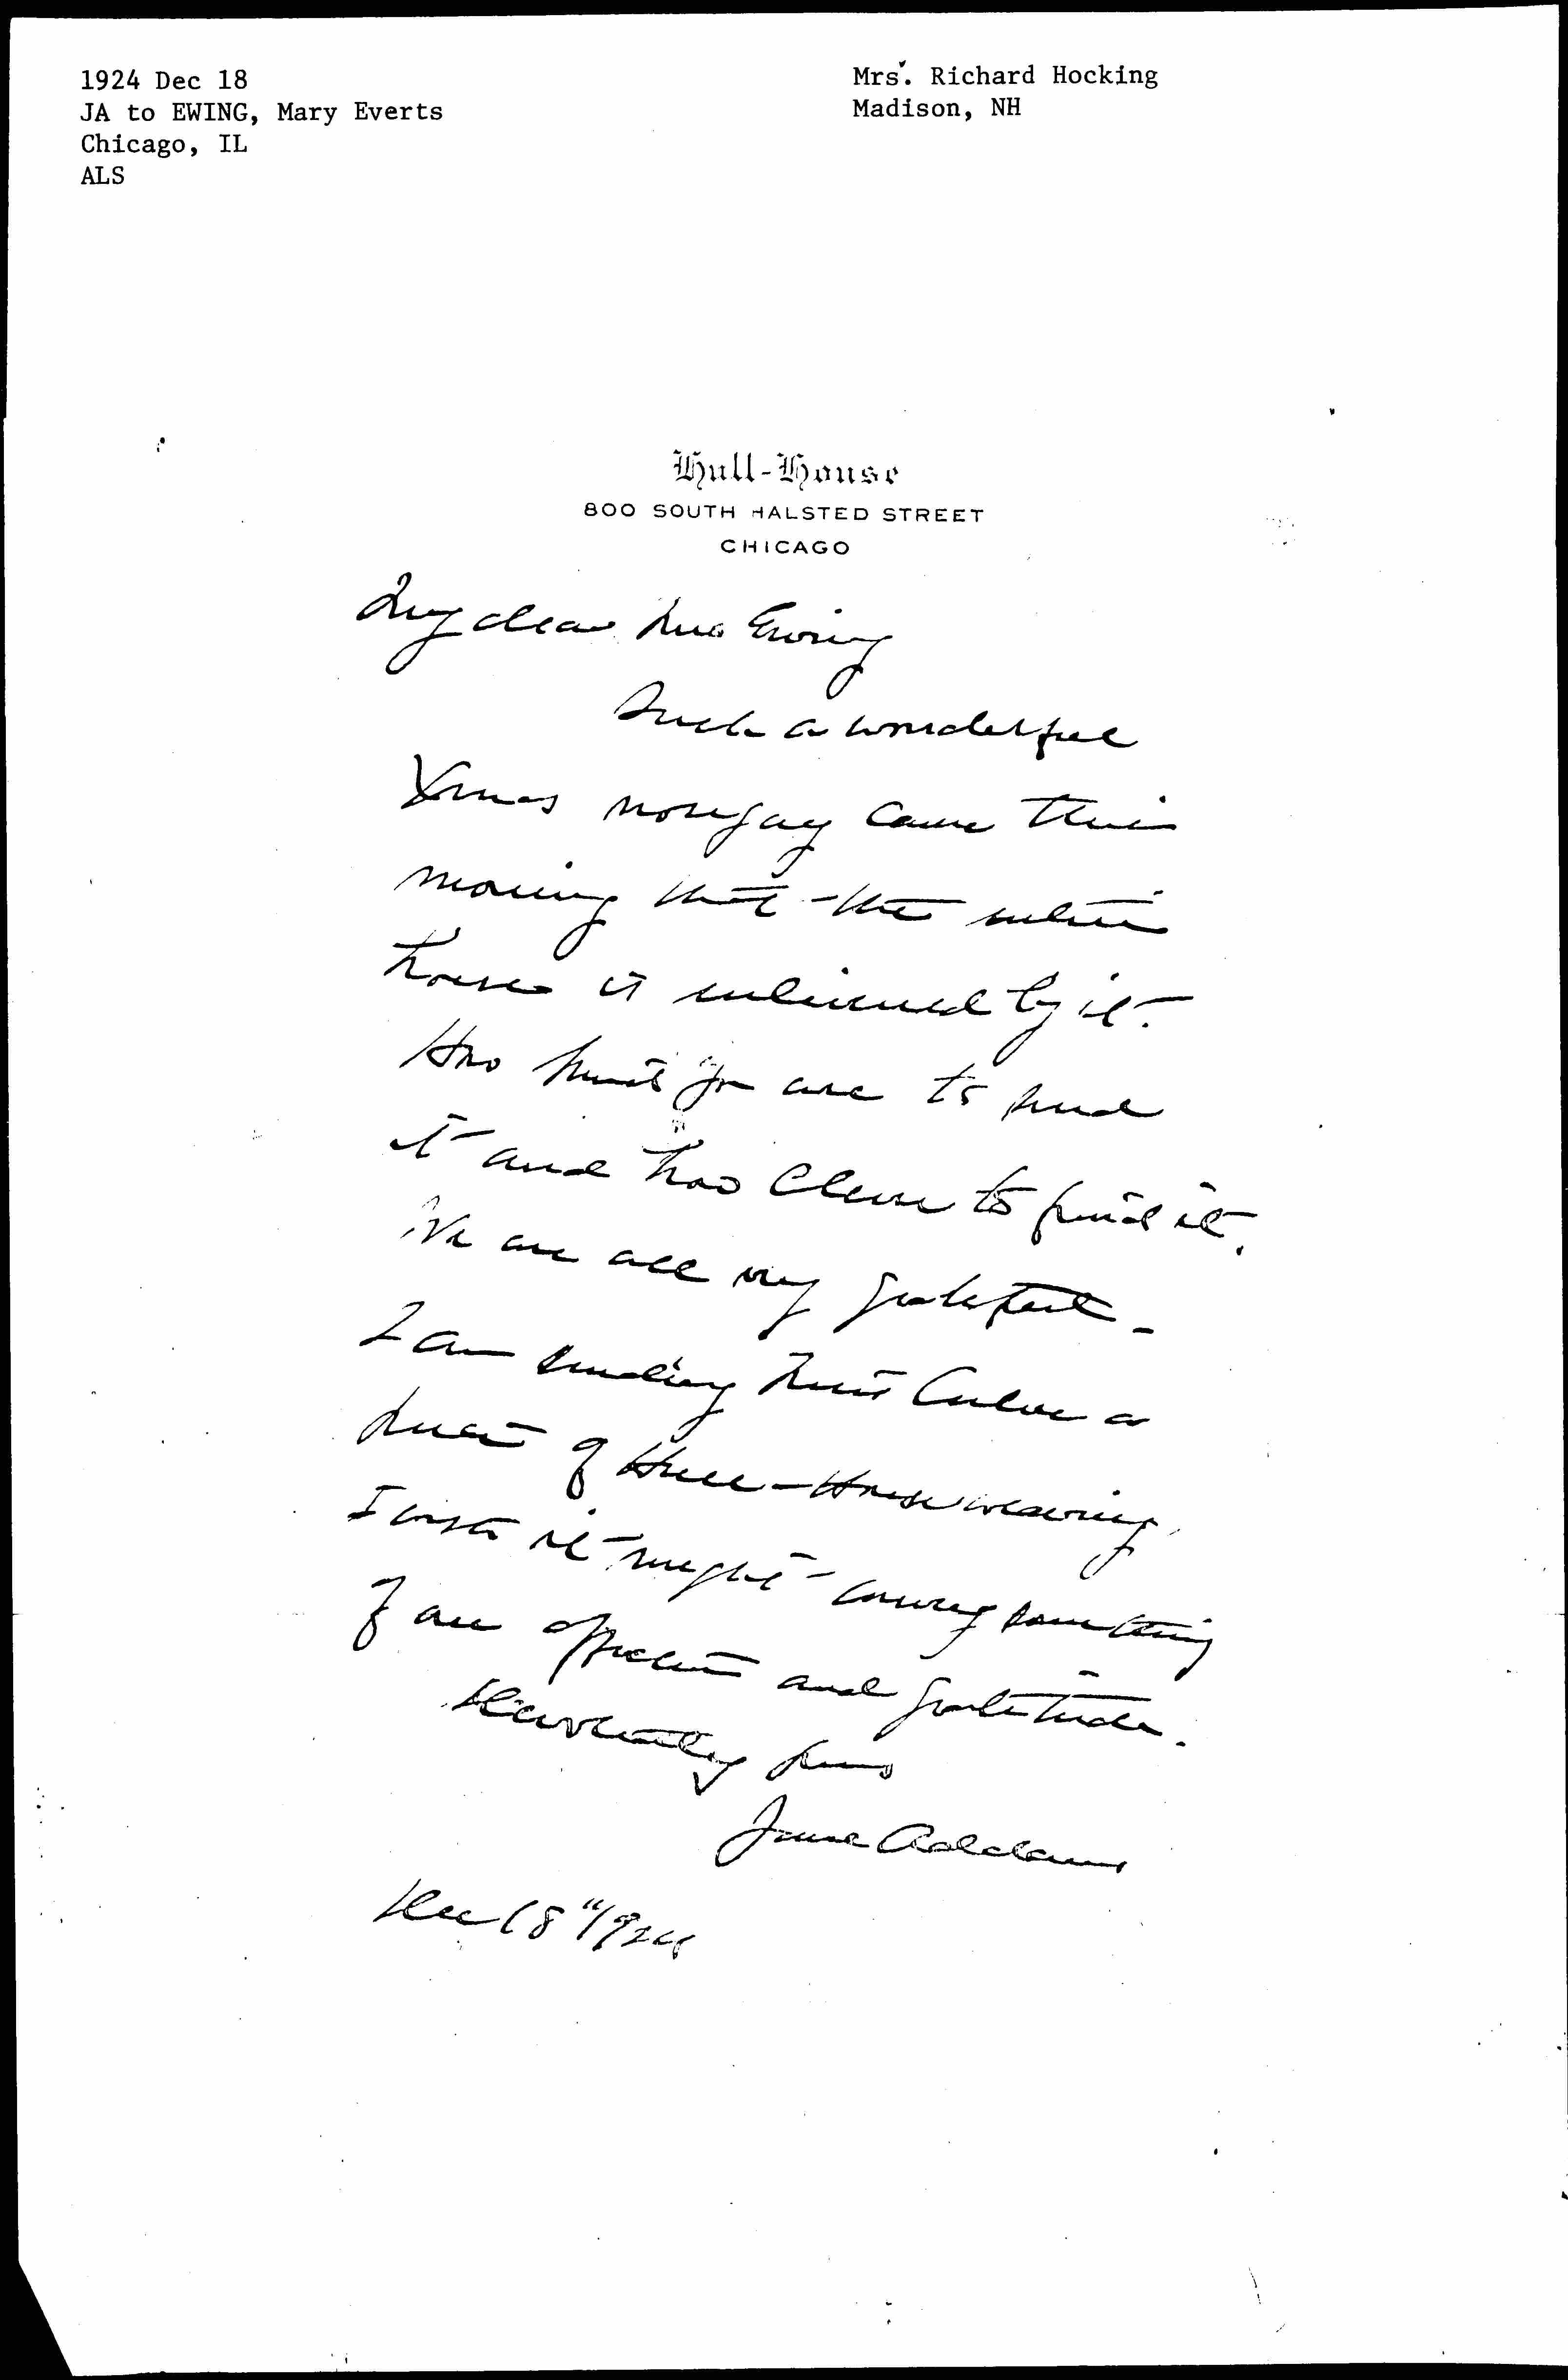 1924 Dec 18
JA to EWING, Mary Everts
Chicago, IL
ALS
Mrs. Richard Hocking
Madison, NH
Hull-House
800 SOUTH HALSTED STREET
CHICAGO
My dear Mrs Ewing
Such a wonderful
Xmas nosegay came this
morning that the entire
house is enlivened by it.
How kind you are to send
it and how clever to find it.
We are all very grateful.
I am sending this
of Hull-House weaving,
I wish it might convey something
of our affection and gratitude.
Devotedly yours
Jane Addams
Dec 18" 1924